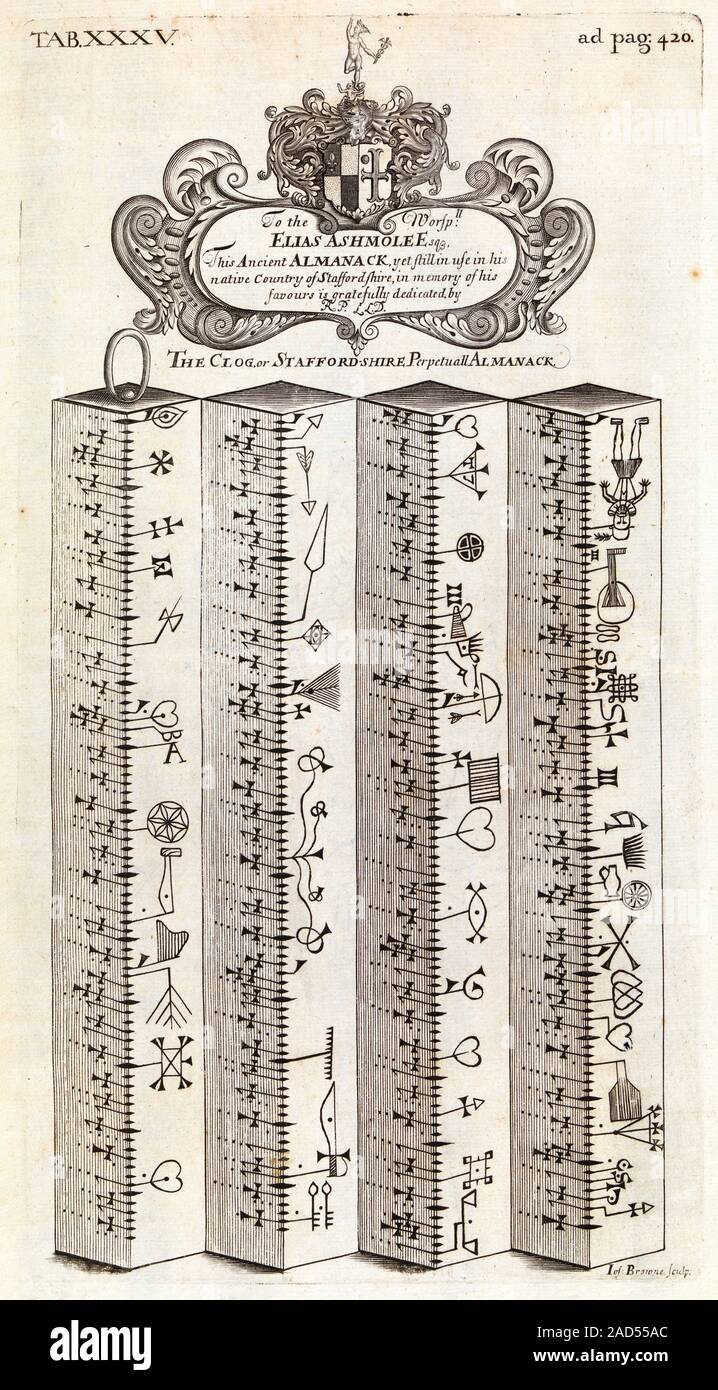 TAB.XXXV.
ad pag: 420.
To the Worsp.ll
ELIAS ASHMOLE Esq3,
This Ancient ALMANACK, yet still in use in his
native Country of Staffordshire, in memory of his
favours is gratefully dedicated, by
R.P. LLD.
THE CLOG, or STAFFORD-SHIRE Perpetuall ALMANACK.
Ios: Browne. sculp.
alamy
Image ID: 2AD55AC
www.alamy.com